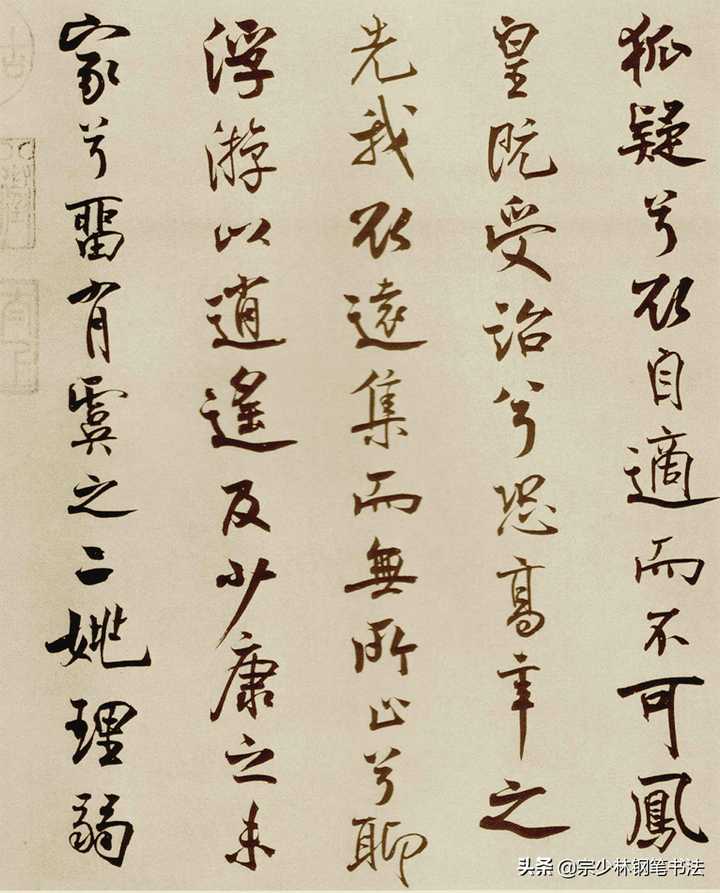 狐疑兮欲自適而不可鳳
皇既受詒兮恐高辛之
先我欲遠集而無所止兮聊
浮游以逍遙及少康之未
家兮留有虞之二姚理弱
头条 @宗少林钢笔书法